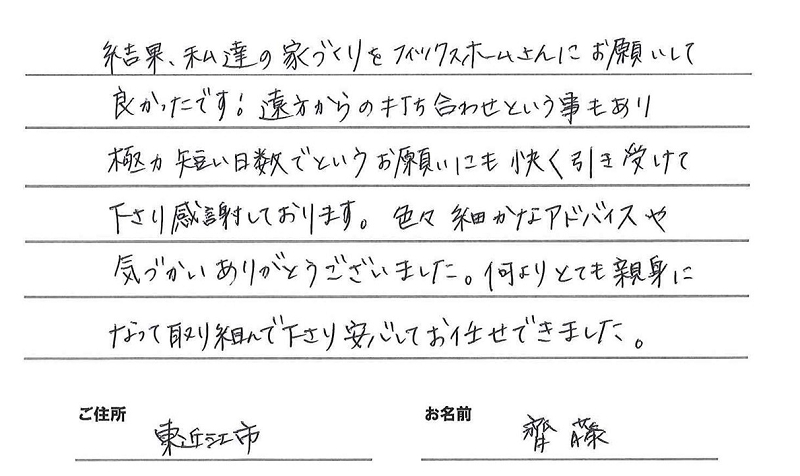 結果、私達の家づくりをフィックスホームさんにお願いして
良かったです！遠方からの打ち合わせという事もあり
極力短い日数でというお願いにも快く引き受けて
下さり感謝しております。色々細かなアドバイスや
気づかいありがとうございました。何よりとても親身に
なって取り組んで下さり安心してお任せできました。
ご住所 東近江市 お名前 齊藤